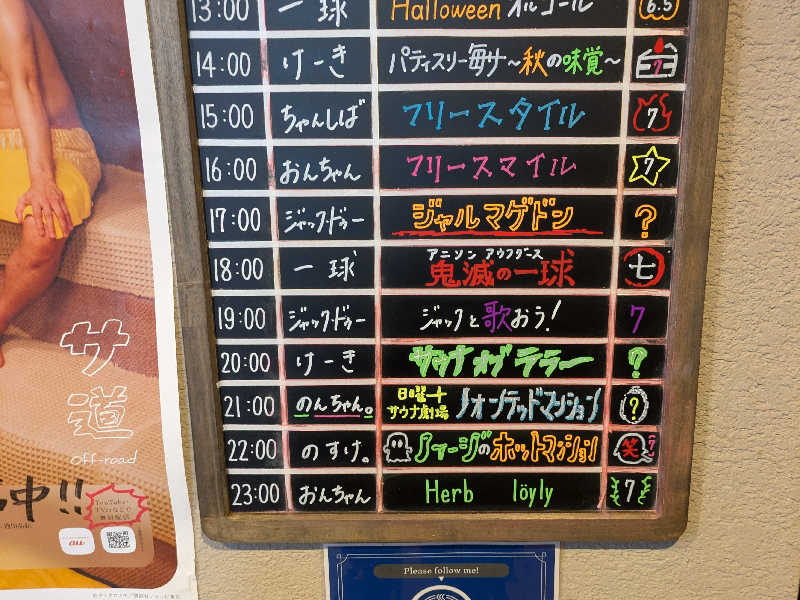 13:00 一球 Halloween オルゴール 6.5
14:00 けーき パティスリー毎サ〜秋の味覚〜 7
15:00 ちゃんしば フリースタイル 7
16:00 おんちゃん フリースマイル 7
17:00 ジャック・ドゥー ジャルマゲドン ?
18:00 一球 アニソン アウフグース
鬼滅の一球 七
19:00 ジャック・ドゥー ジャックと歌おう! 7
20:00 けーき サウナオブテラー ?
21:00 のんちゃん。 日曜十
サウナ劇場 ?
22:00 のすけ。 笑
23:00 おんちゃん Herb löyly 7
サ
道
off-road
中!!
YouTube
au
Please follow me!